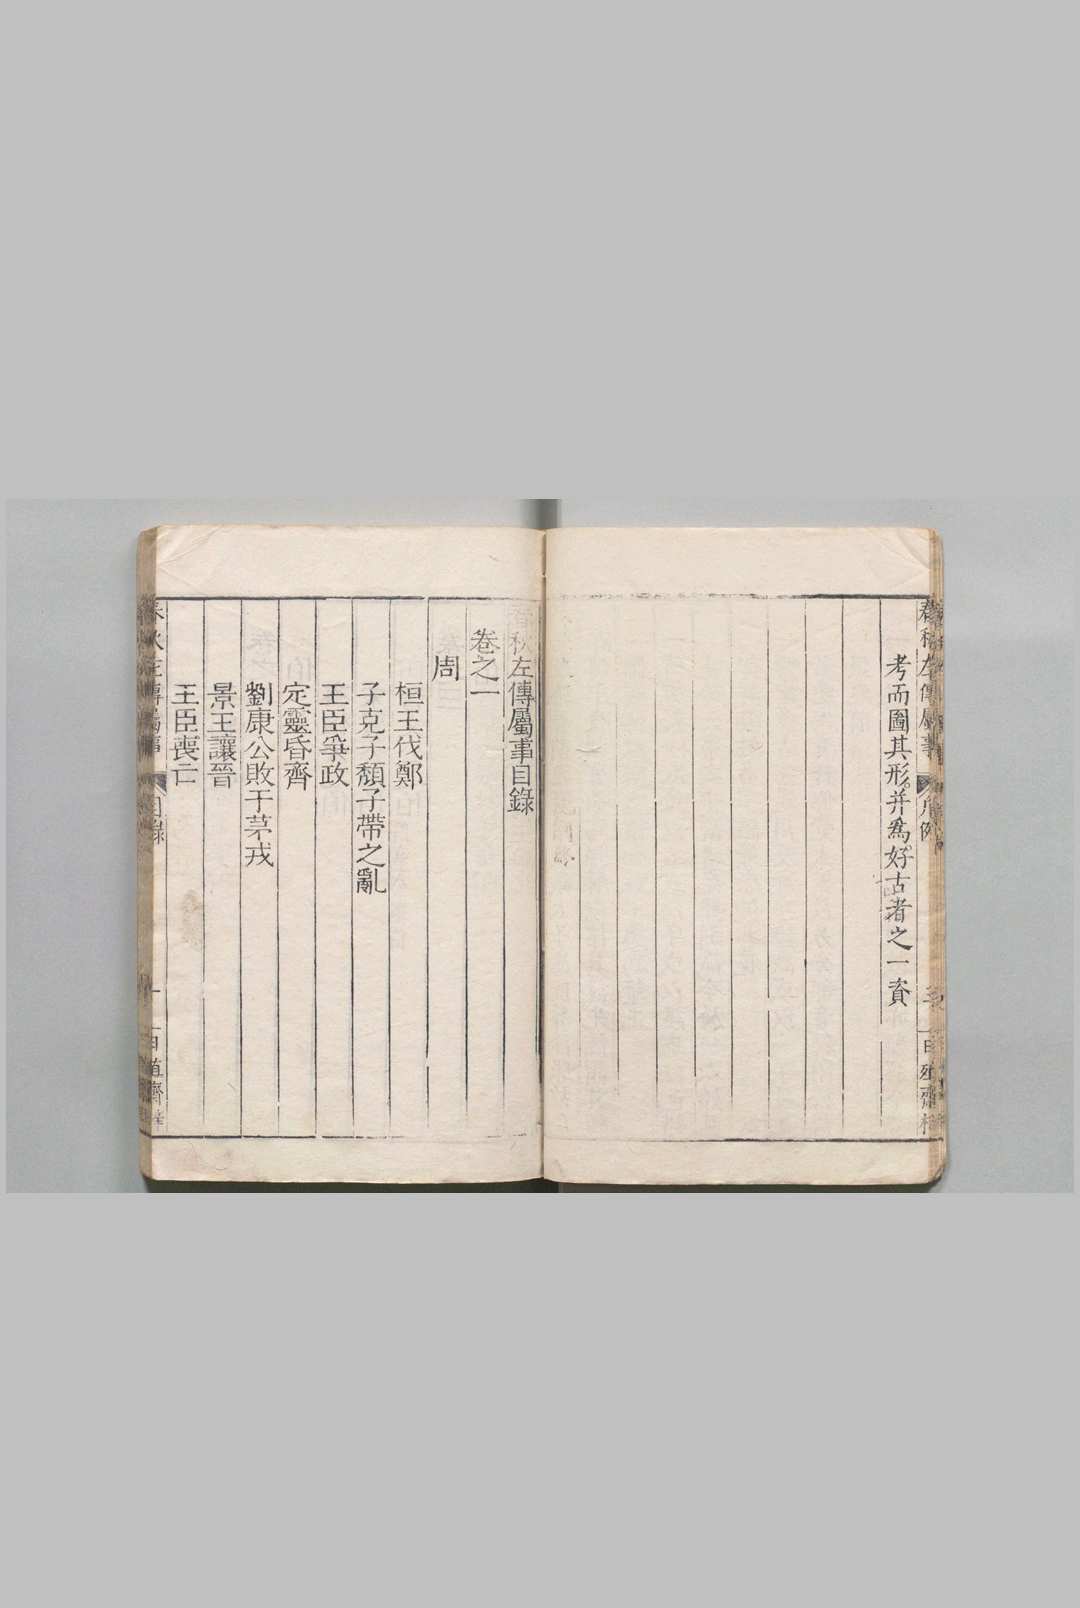 春秋左傳屬事
凡例
考而圖其形。并爲好古者之一資
春秋左傳屬事目錄
卷之一
周
桓王伐鄭
子克子頽子帶之亂
王臣爭政
定靈昏齊
劉康公敗于茅戎
景王讓晉
王臣喪亡
春秋左傳屬事
目錄
一